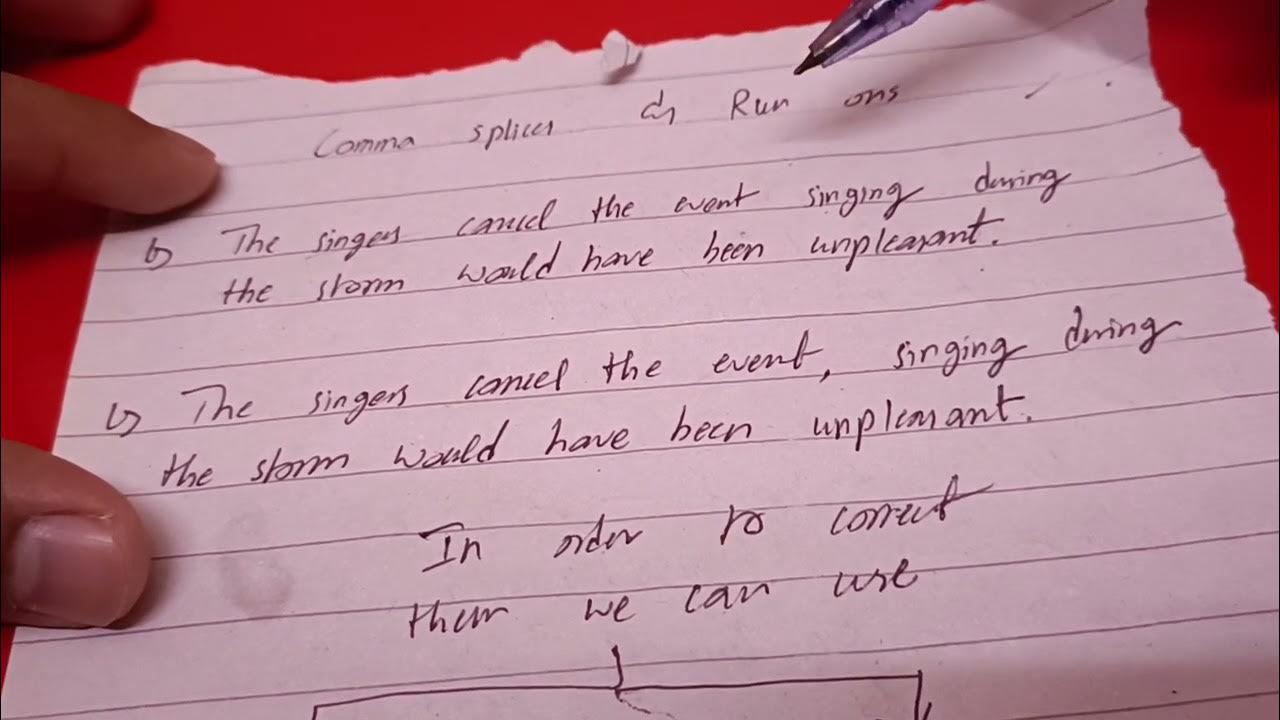 Comma splices & Run ons
The singers cancel the event singing during
the storm would have been unpleasant.
The singers cancel the event, singing during
the storm would have been unpleasant.
In order to correct
them we can use